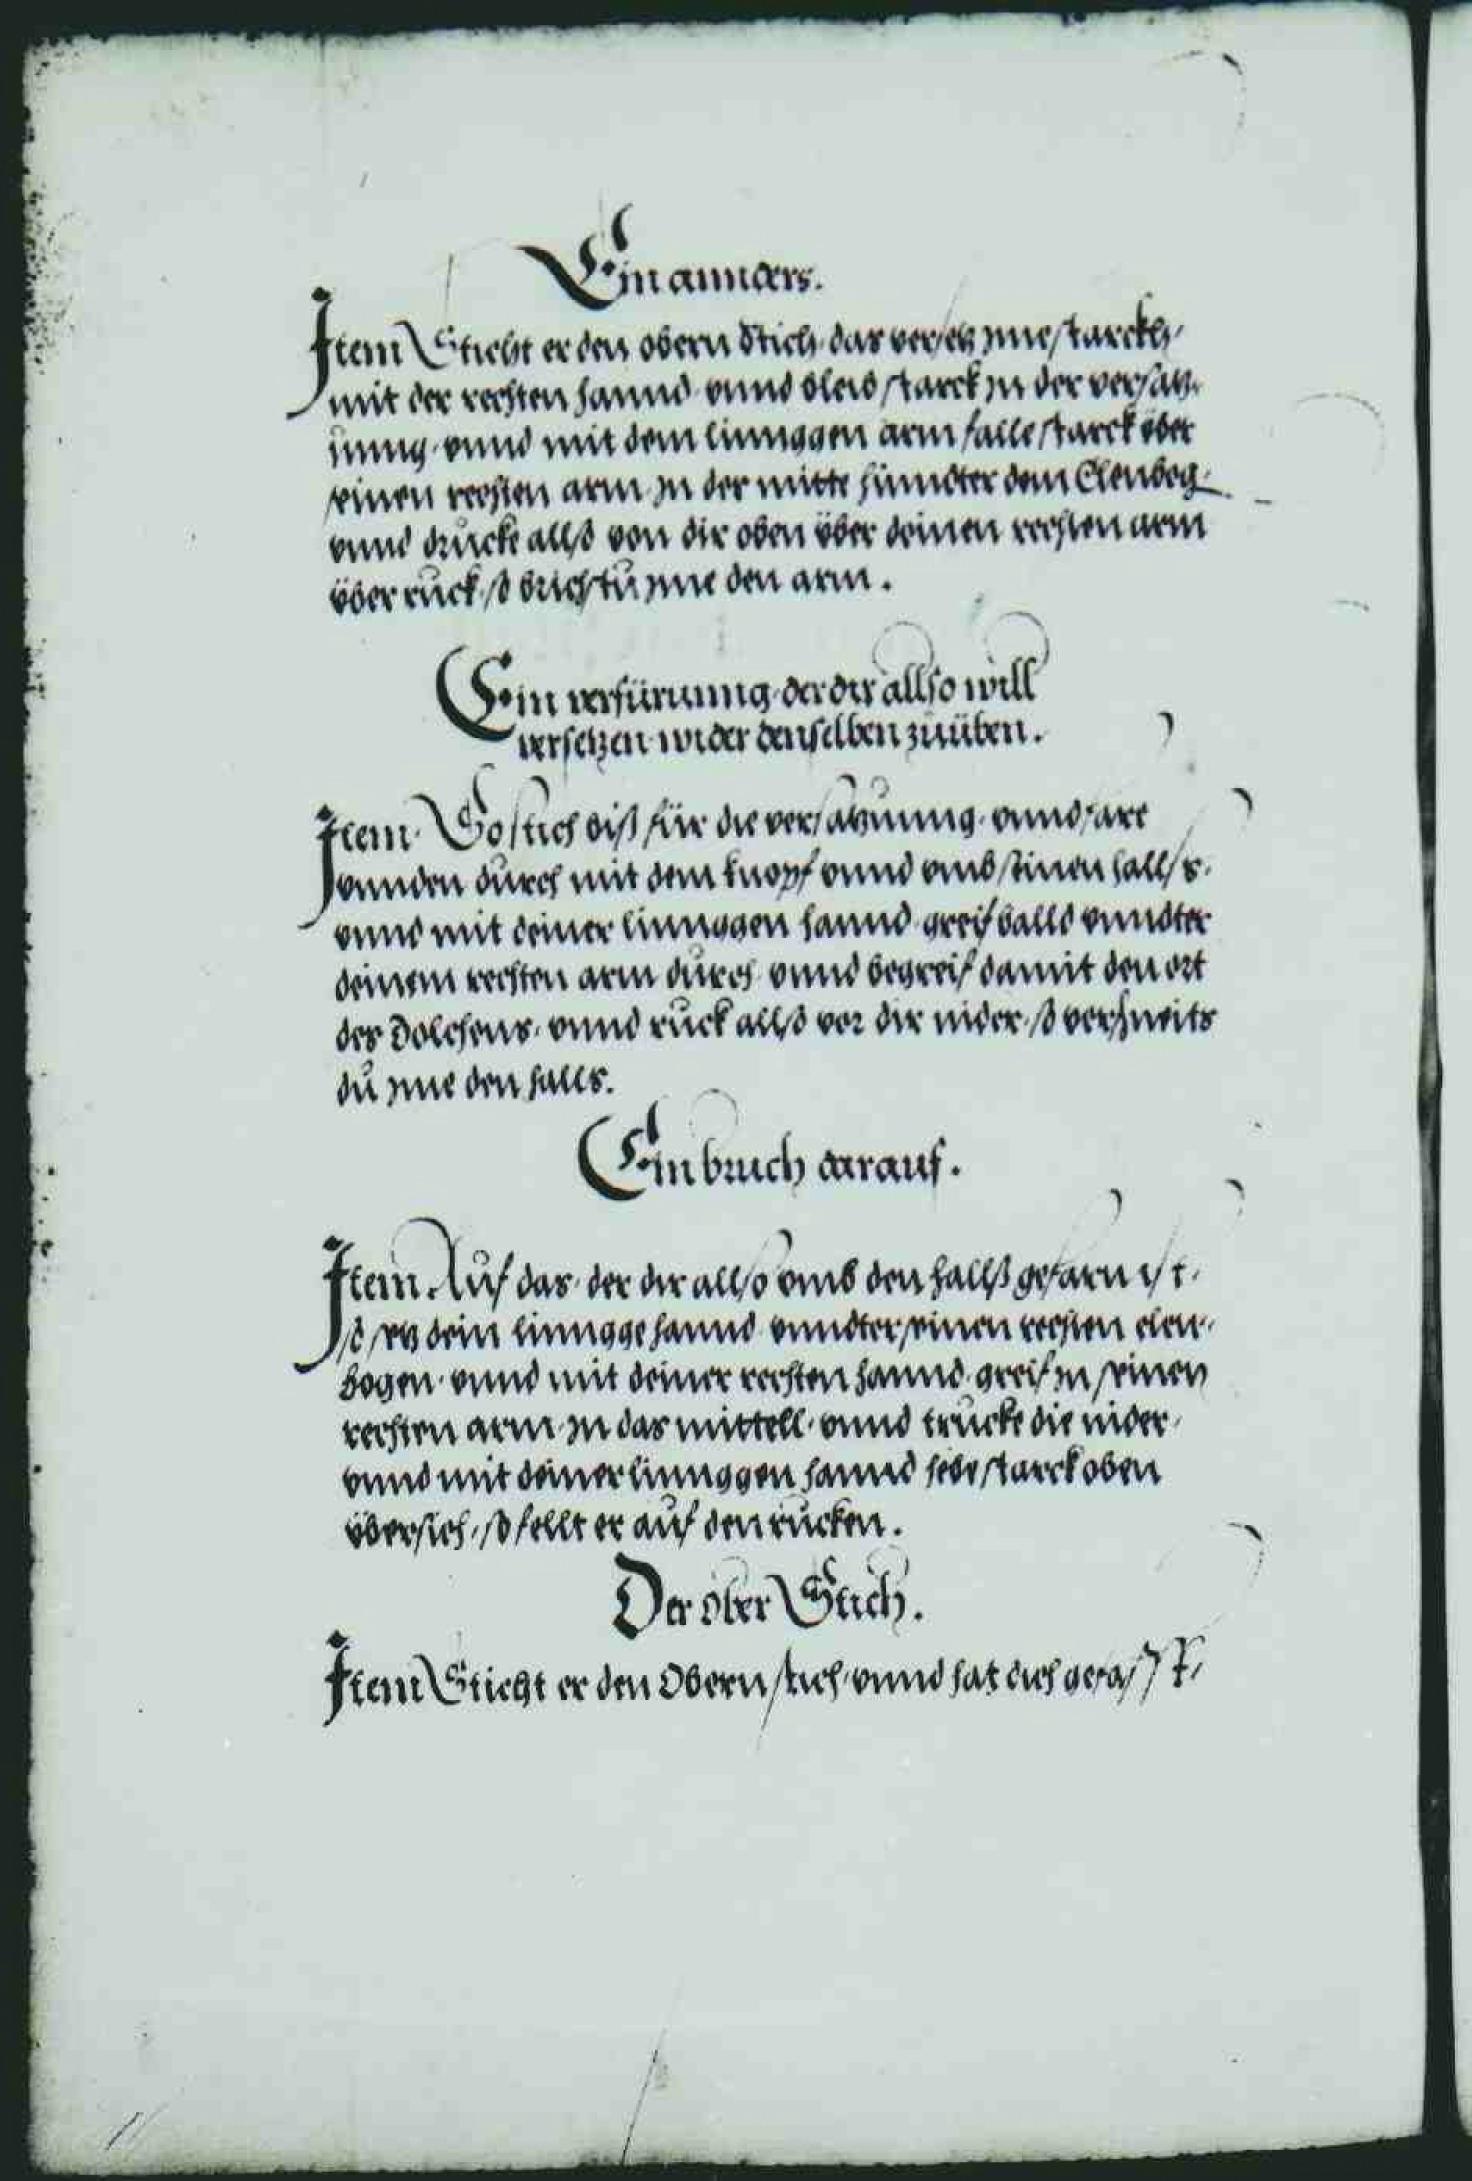 Ein annders.
Item Sticht er den obern Stich, das versetz jme starckh,
mit der rechten hannd, vnnd bleib starck jn der versatz,
nung, vnnd mit dem linnggen arm falle starck über
seinen rechten arm, jn der mitte hinndter dem Elenbog,
vnnd drucke allso von dir oben über deinen rechten arm
über ruck, so brichstu jme den arm.
Ein verfürunng, der dir allso will
versetzen, wider denselben zuüben.
Item, So stich biß für die versatzunng, vnnd far
vnnden durch mit dem knopf vnnd vmb seinen hallß,
vnnd mit deiner linnggen hannd, greif balld vnndter
deinem rechten arm durch, vnnd begreif damit den ort
des Dolchens, vnnd ruck allso vor dir nider, so
du jme den halls.
Ein bruch darauf.
Item, Auf das, der dir allso vmb den hallß gefarn ist,
so setz dein linngge hannd, vnndter seinen rechten elen,
bogen, vnnd mit deiner rechten hannd, greif jn seinen
rechten arm, jn das mittell, vnnd trucke die nider,
vnnd mit deiner linnggen hannd hebe starck oben
übersich, so fellt er auf den rucken.
Der ober Stich.
Item Sticht er den Obern stich, vnnd hat dich gefasst,